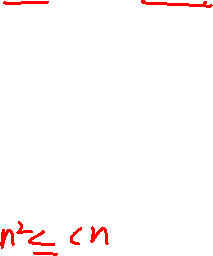 n² ≤ cn